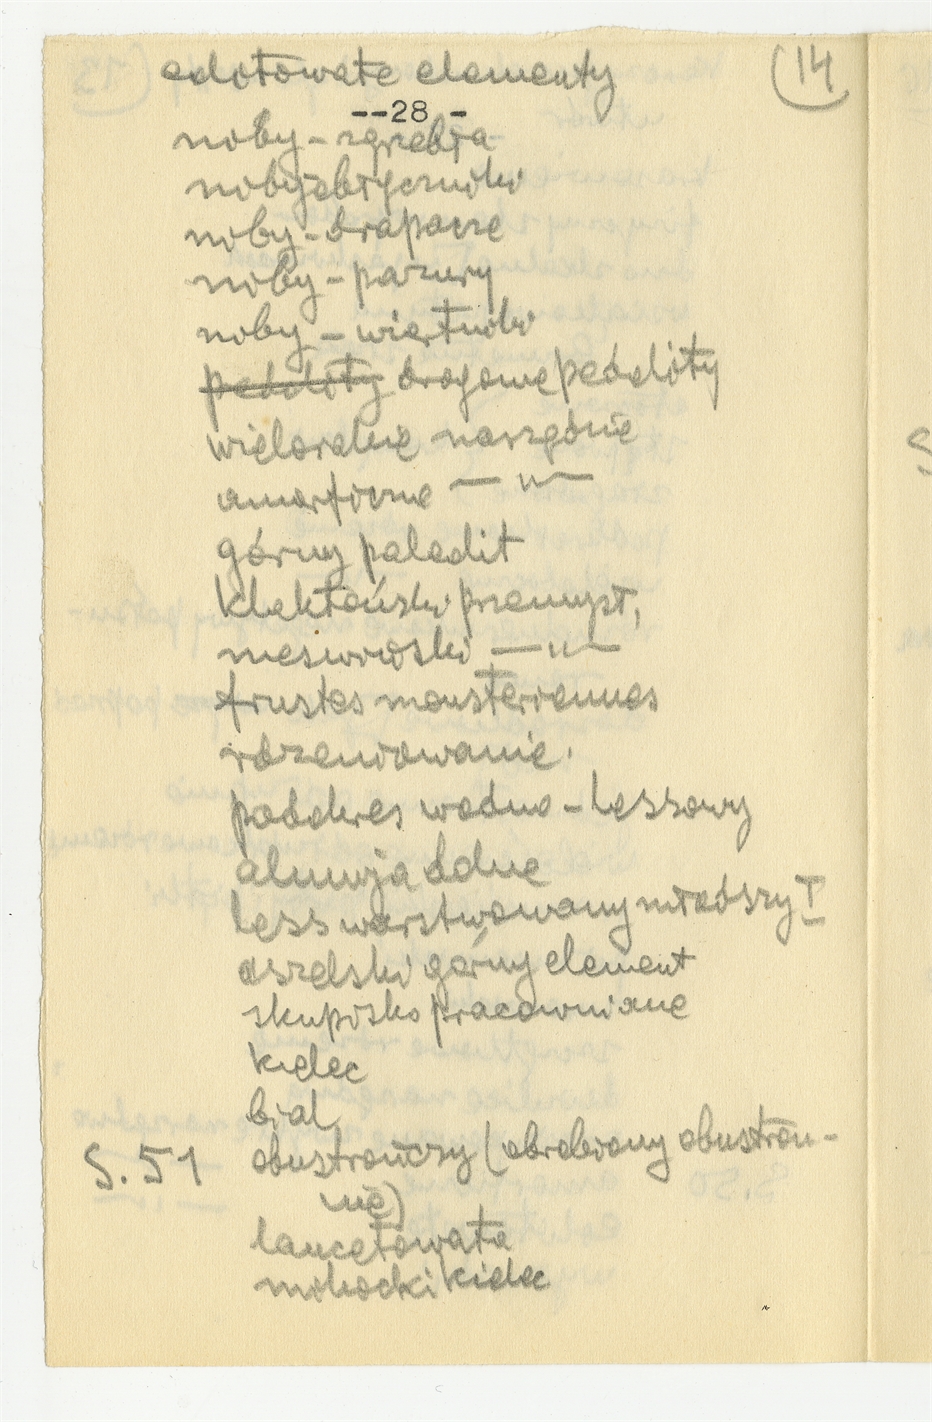 eolitowate elementy (14
--28 -
noby - zgrzebła
noby
noby - drapacze
noby - pazury
noby - wiertniki
peddlity drogowe peddlity
wieloralne narzędnie
amorficzne — " —
górny paledit
klektoński przemysł,
meswiński — " —
frustes mousteriennes
rdzeniowanie.
podokres wodno - lessowy
aluwja dolne
less warstwowany młodszy I
aszelski górny element
skupisko pracowniane
kielec
bial,
S. 51 obustrończy (obrobiony obustron-
nie)
lancetowata
mohocki kielec